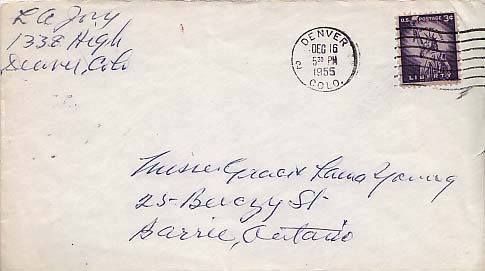 1338 High
Denver, Colo
DENVER
DEC 16
5 30 PM
1955
COLO.
2
U.S. POSTAGE 3¢
LIBERTY
Misses Grace & Lena Young
25 Berczy St
Barrie, Ontario